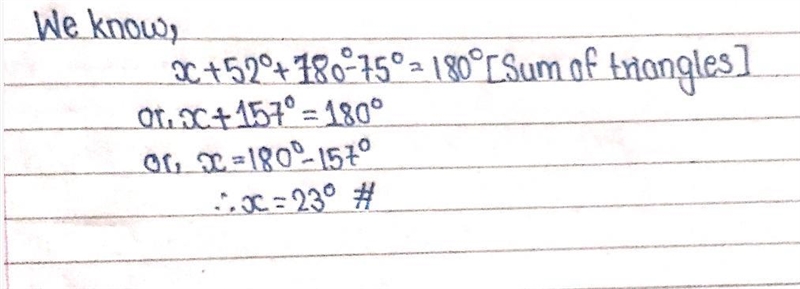 We know,
x+52°+180°-75°=180° [Sum of triangles]
or, x+157°=180°
or, x=180°-157°
∴x=23° #